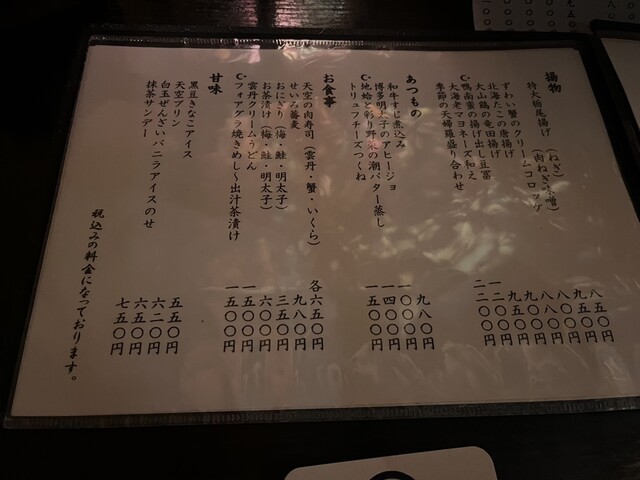 揚物
特大栃尾揚げ（ねぎ） 八五〇円
（肉ねぎ味噌） 九五〇円
ずわい蟹のクリームコロッケ
北海たこの唐揚げ
大山鶏の竜田揚げ
鴨南蛮の揚げ出し豆富
大海老マヨネーズ和え
季節の天婦羅盛り合わせ
あつもの
和牛すじ煮込み 九八〇円
博多明太子のアヒージョ 一〇〇〇円
地蛤と彩り野菜の潮バター蒸し 一四〇〇円
トリュフチーズつくね 一五〇〇円
お食事
天空の肉寿司（雲丹・蟹・いくら） 各六五〇円
せいろ蕎麦 九八〇円
おにぎり（梅・鮭・明太子） 三五〇円
お茶漬け（梅・鮭・明太子） 六〇〇円
雲丹クリームうどん 一五〇〇円
フォアグラ焼きめし～出汁茶漬け 一五〇〇円
甘味
黒豆きなこアイス 五五〇円
天空プリン 六二〇円
白玉ぜんざいバニラアイスのせ 六五〇円
抹茶サンデー 七五〇円
税込みの料金になっております。